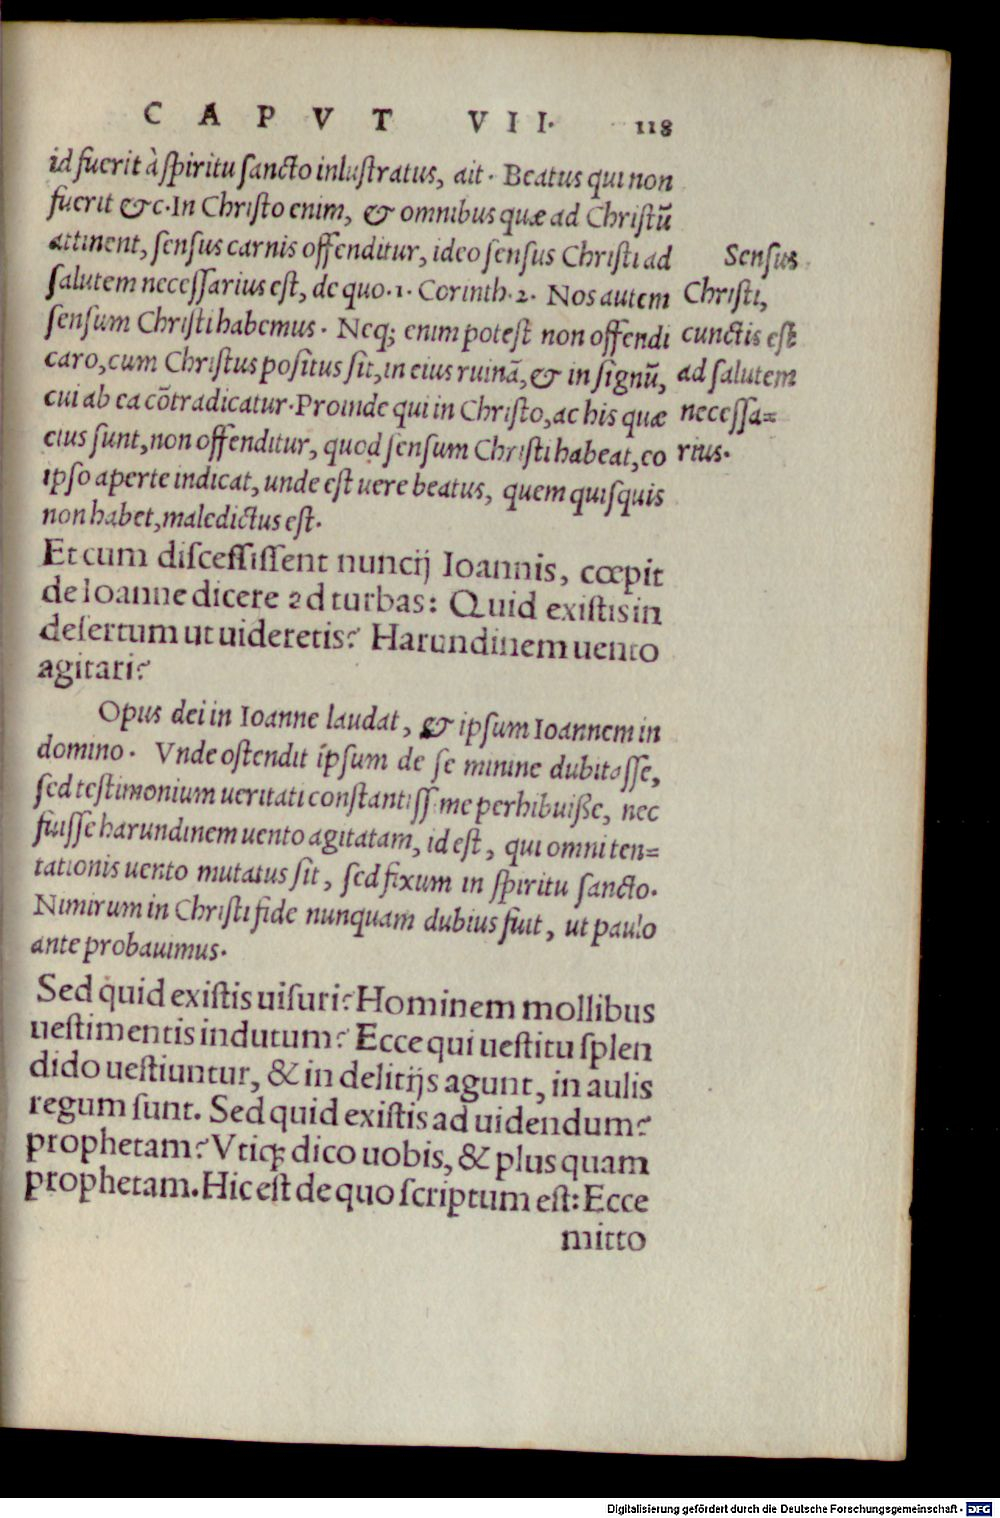 CAPVT VII. 118
id fuerit à ſpiritu ſancto inluſtratus, ait. Beatus qui non
fuerit &c. In Chriſto enim, & omnibus quæ ad Chriſtũ
attinent, ſenſus carnis offenditur, ideo ſenſus Chriſti ad
ſalutem neceſſarius eſt, de quo. 1. Corinth. 2. Nos autem
ſenſum Chriſti habemus. Neq; enim poteſt non offendi
caro, cum Chriſtus poſitus ſit, in eius ruinã, & in ſignũ,
cui ab ea cõtradicatur. Proinde qui in Chriſto, ac his quæ
eius ſunt, non offenditur, quod ſenſum Chriſti habeat, eo
ipſo aperte indicat, unde eſt uere beatus, quem quiſquis
non habet, maledictus eſt.
Senſus
Chriſti,
cunctis eſt
ad ſalutem
neceſſa=
rius.
Et cum diſceſſiſſent nuncij Ioannis, cœpit
de Ioanne dicere ad turbas: Quid existis in
deſertum ut uideretis? Harundinem uento
agitari?
Opus dei in Ioanne laudat, & ipſum Ioannem in
domino. Vnde oſtendit ipſum de ſe minime dubitaſſe,
ſed teſtimonium ueritati conſtantiſſime perhibuiße, nec
fuiſſe harundinem uento agitatam, id eſt, qui omni ten=
tationis uento mutatus ſit, ſed fixum in ſpiritu ſancto.
Nimirum in Chriſti fide nunquam dubius fuit, ut paulo
ante probauimus.
Sed quid exiſtis uiſuri? Hominem mollibus
ueſtimentis indutum? Ecce qui ueſtitu ſplen
dido ueſtiuntur, & in delitijs agunt, in aulis
regum ſunt. Sed quid exiſtis ad uidendum?
prophetam? Vtiq; dico uobis, & plus quam
prophetam. Hic eſt de quo ſcriptum eſt: Ecce
mitto
Digitalisierung gefördert durch die Deutsche Forschungsgemeinschaft - DFG